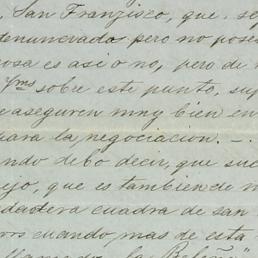 San Franzisco, que, se
denunciado pero no pose
cosa es asi o no, pero de
Yms sobre este punto, sup
e aseguren muy bien en
para la negociacion. –.
ndo debo decir, que suc
ejo, que es tambien de m
dadera cuadra de san
ros cuando mas de esta
llamado la Relen